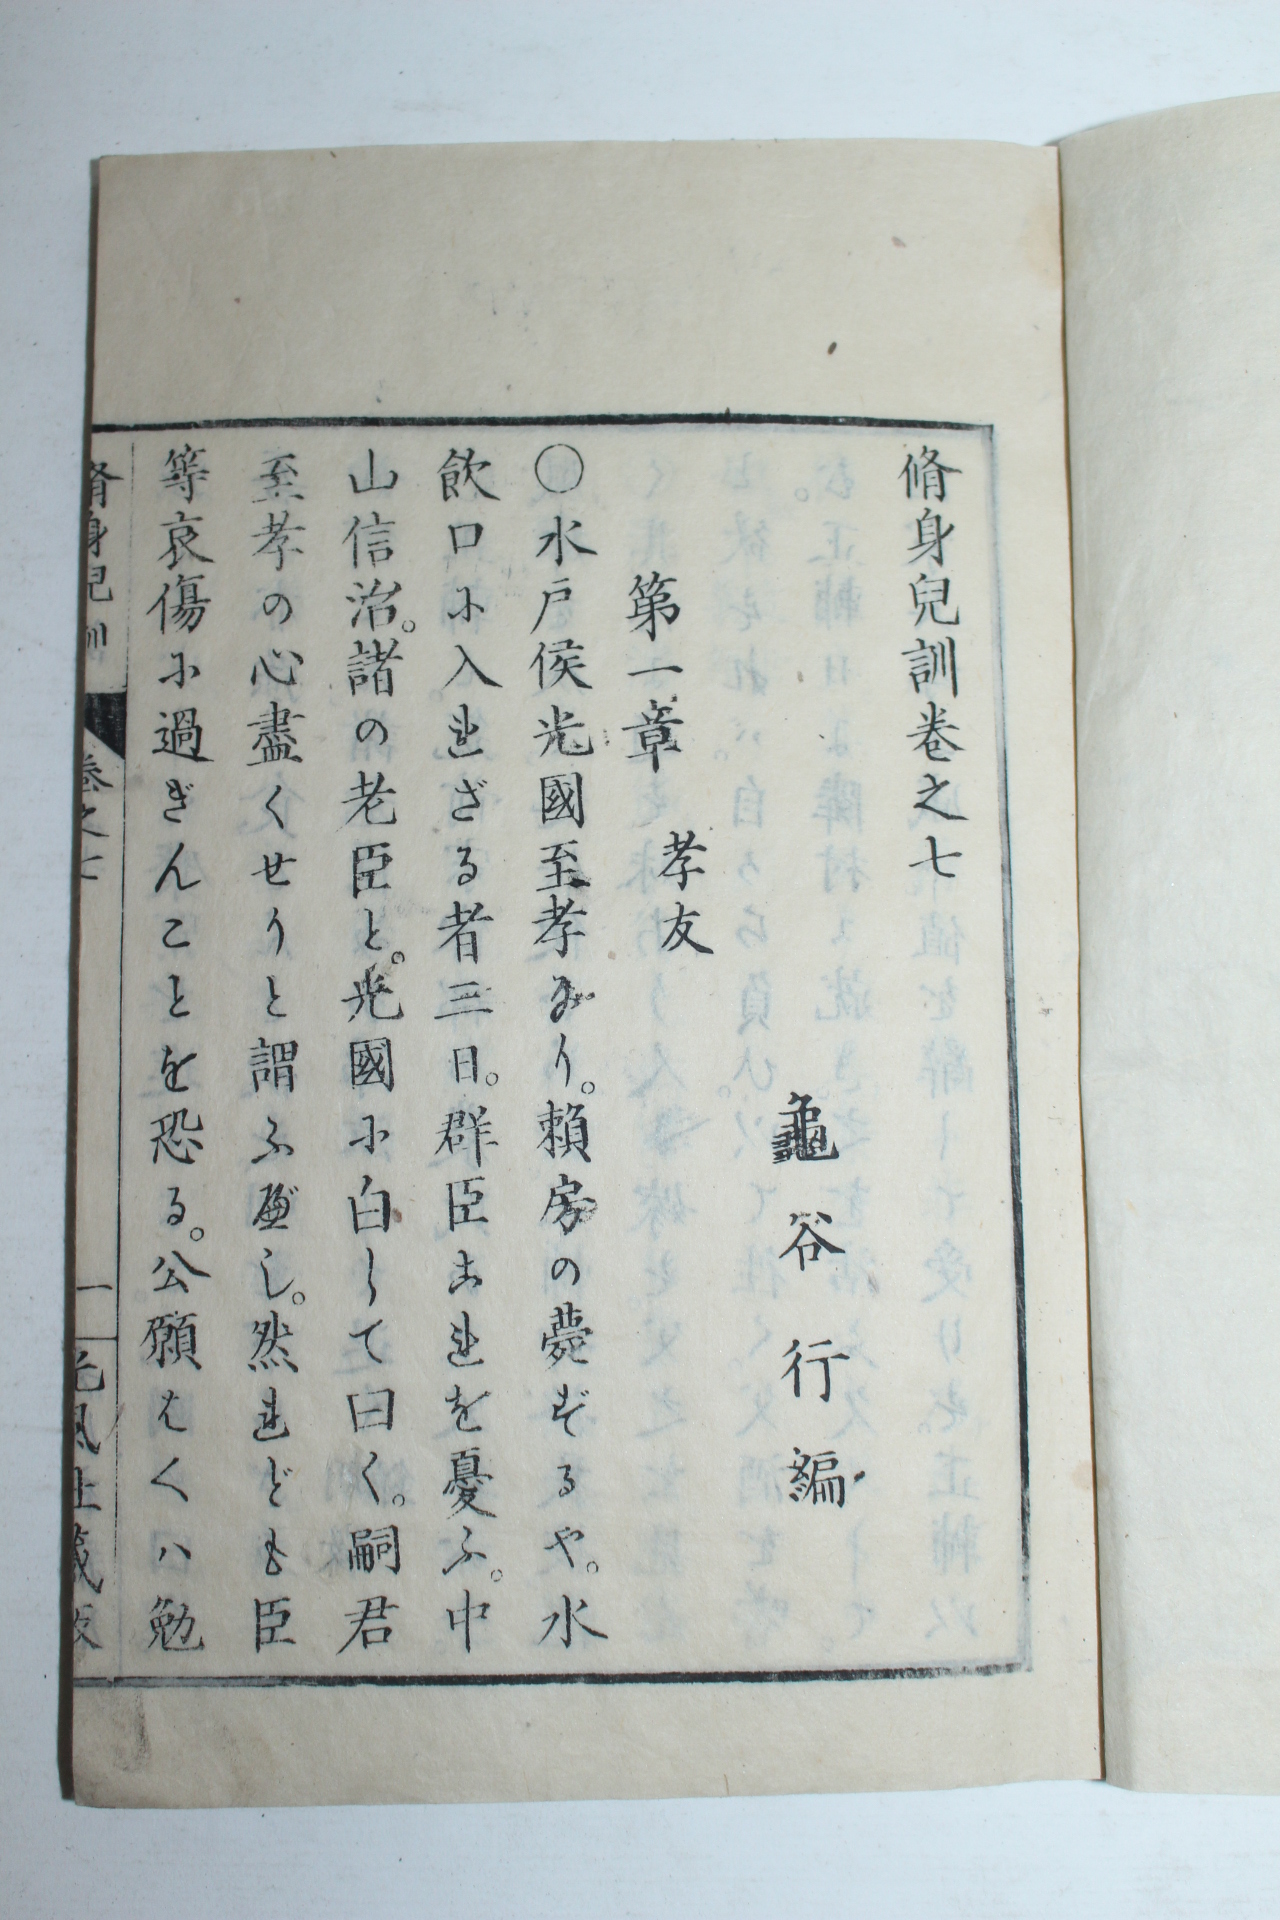 脩身兒訓卷之七
龜谷行編
第一章　孝友
〇水戸侯光國至孝なり。賴房の薨ずるや。水
飲口に入れざる者三日。群臣これを憂ふ。中
山信治。諸の老臣と。光國に白して曰く。嗣君
至孝の心盡くせりと謂ふべし。然れども臣
等哀傷に過ぎんことを恐る。公願はくハ勉
脩身兒訓　卷之七　一　光風社藏版